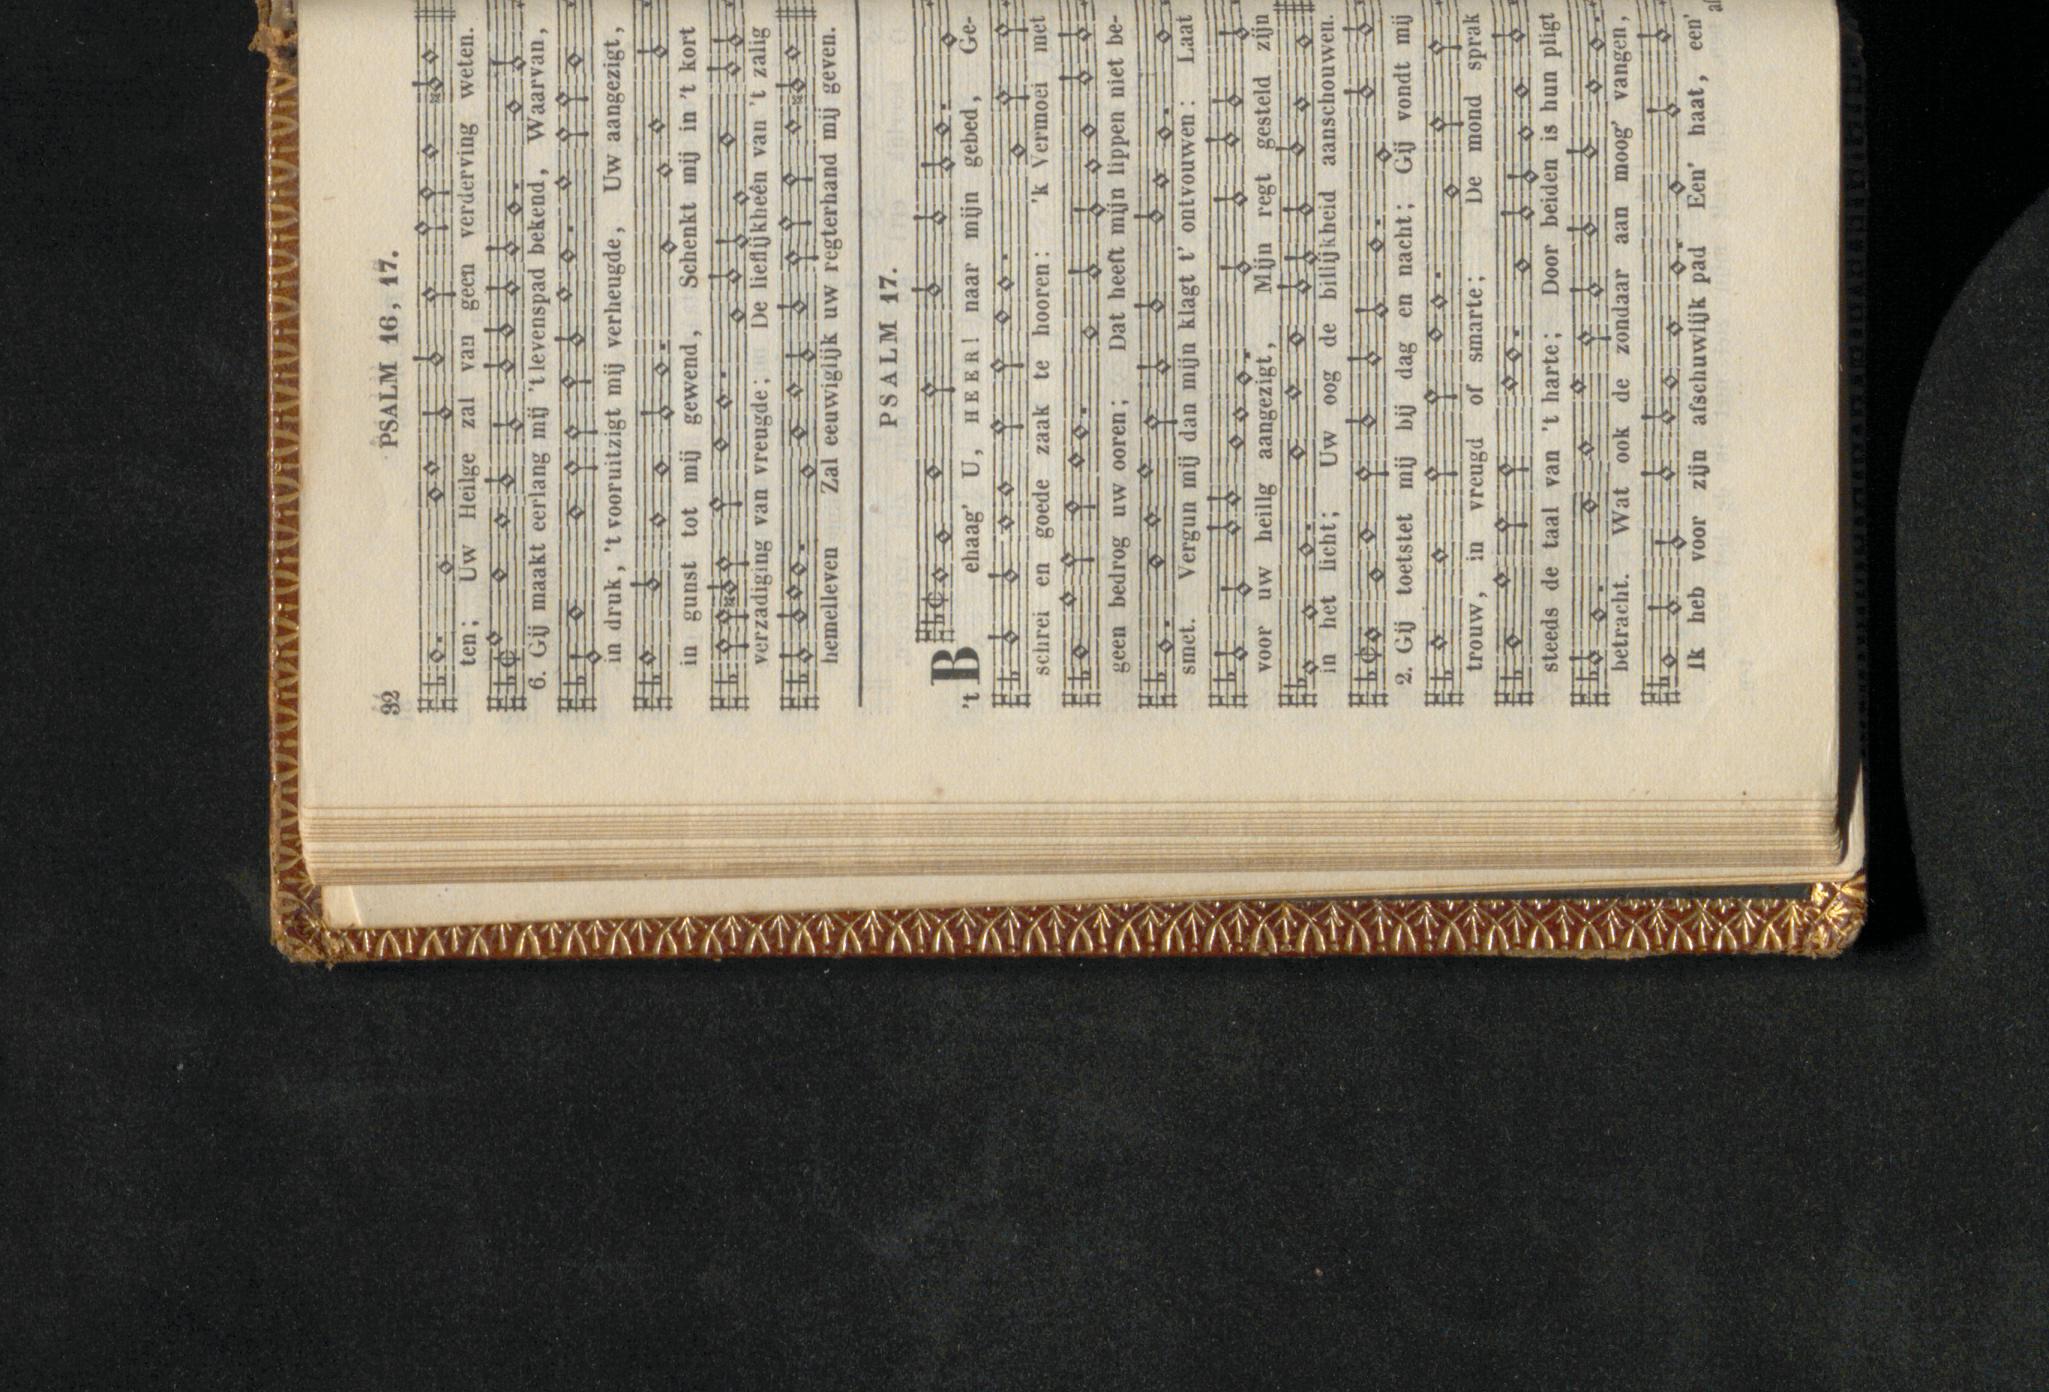 32 PSALM 16, 17.
ten; Uw Heilge zal van geen verderving weten.
6. Gij maakt eerlang mij 't levenspad bekend, Waarvan,
in druk, 't vooruitzigt mij verheugde, Uw aangezigt,
in gunst tot mij gewend, Schenkt mij in 't kort
verzadiging van vreugde; De lieflijkheên van 't zalig
hemelleven Zal eeuwiglijk uw regterhand mij geven.
PSALM 17.
't Behaag' U, HEER! naar mijn gebed, Ge-
schrei en goede zaak te hooren: 'k Vermoei met
geen bedrog uw ooren; Dat heeft mijn lippen niet be-
smet. Vergun mij dan mijn klagt t' ontvouwen: Laat
voor uw heilig aangezigt, Mijn regt gesteld zijn
in het licht; Uw oog de billijkheid aanschouwen.
2. Gij toetstet mij bij dag en nacht; Gij vondt mij
trouw, in vreugd of smarte; De mond sprak
steeds de taal van 't harte; Door beiden is hun pligt
betracht. Wat ook de zondaar aan moog' vangen,
Ik heb voor zijn afschuwlijk pad Een' haat, een'